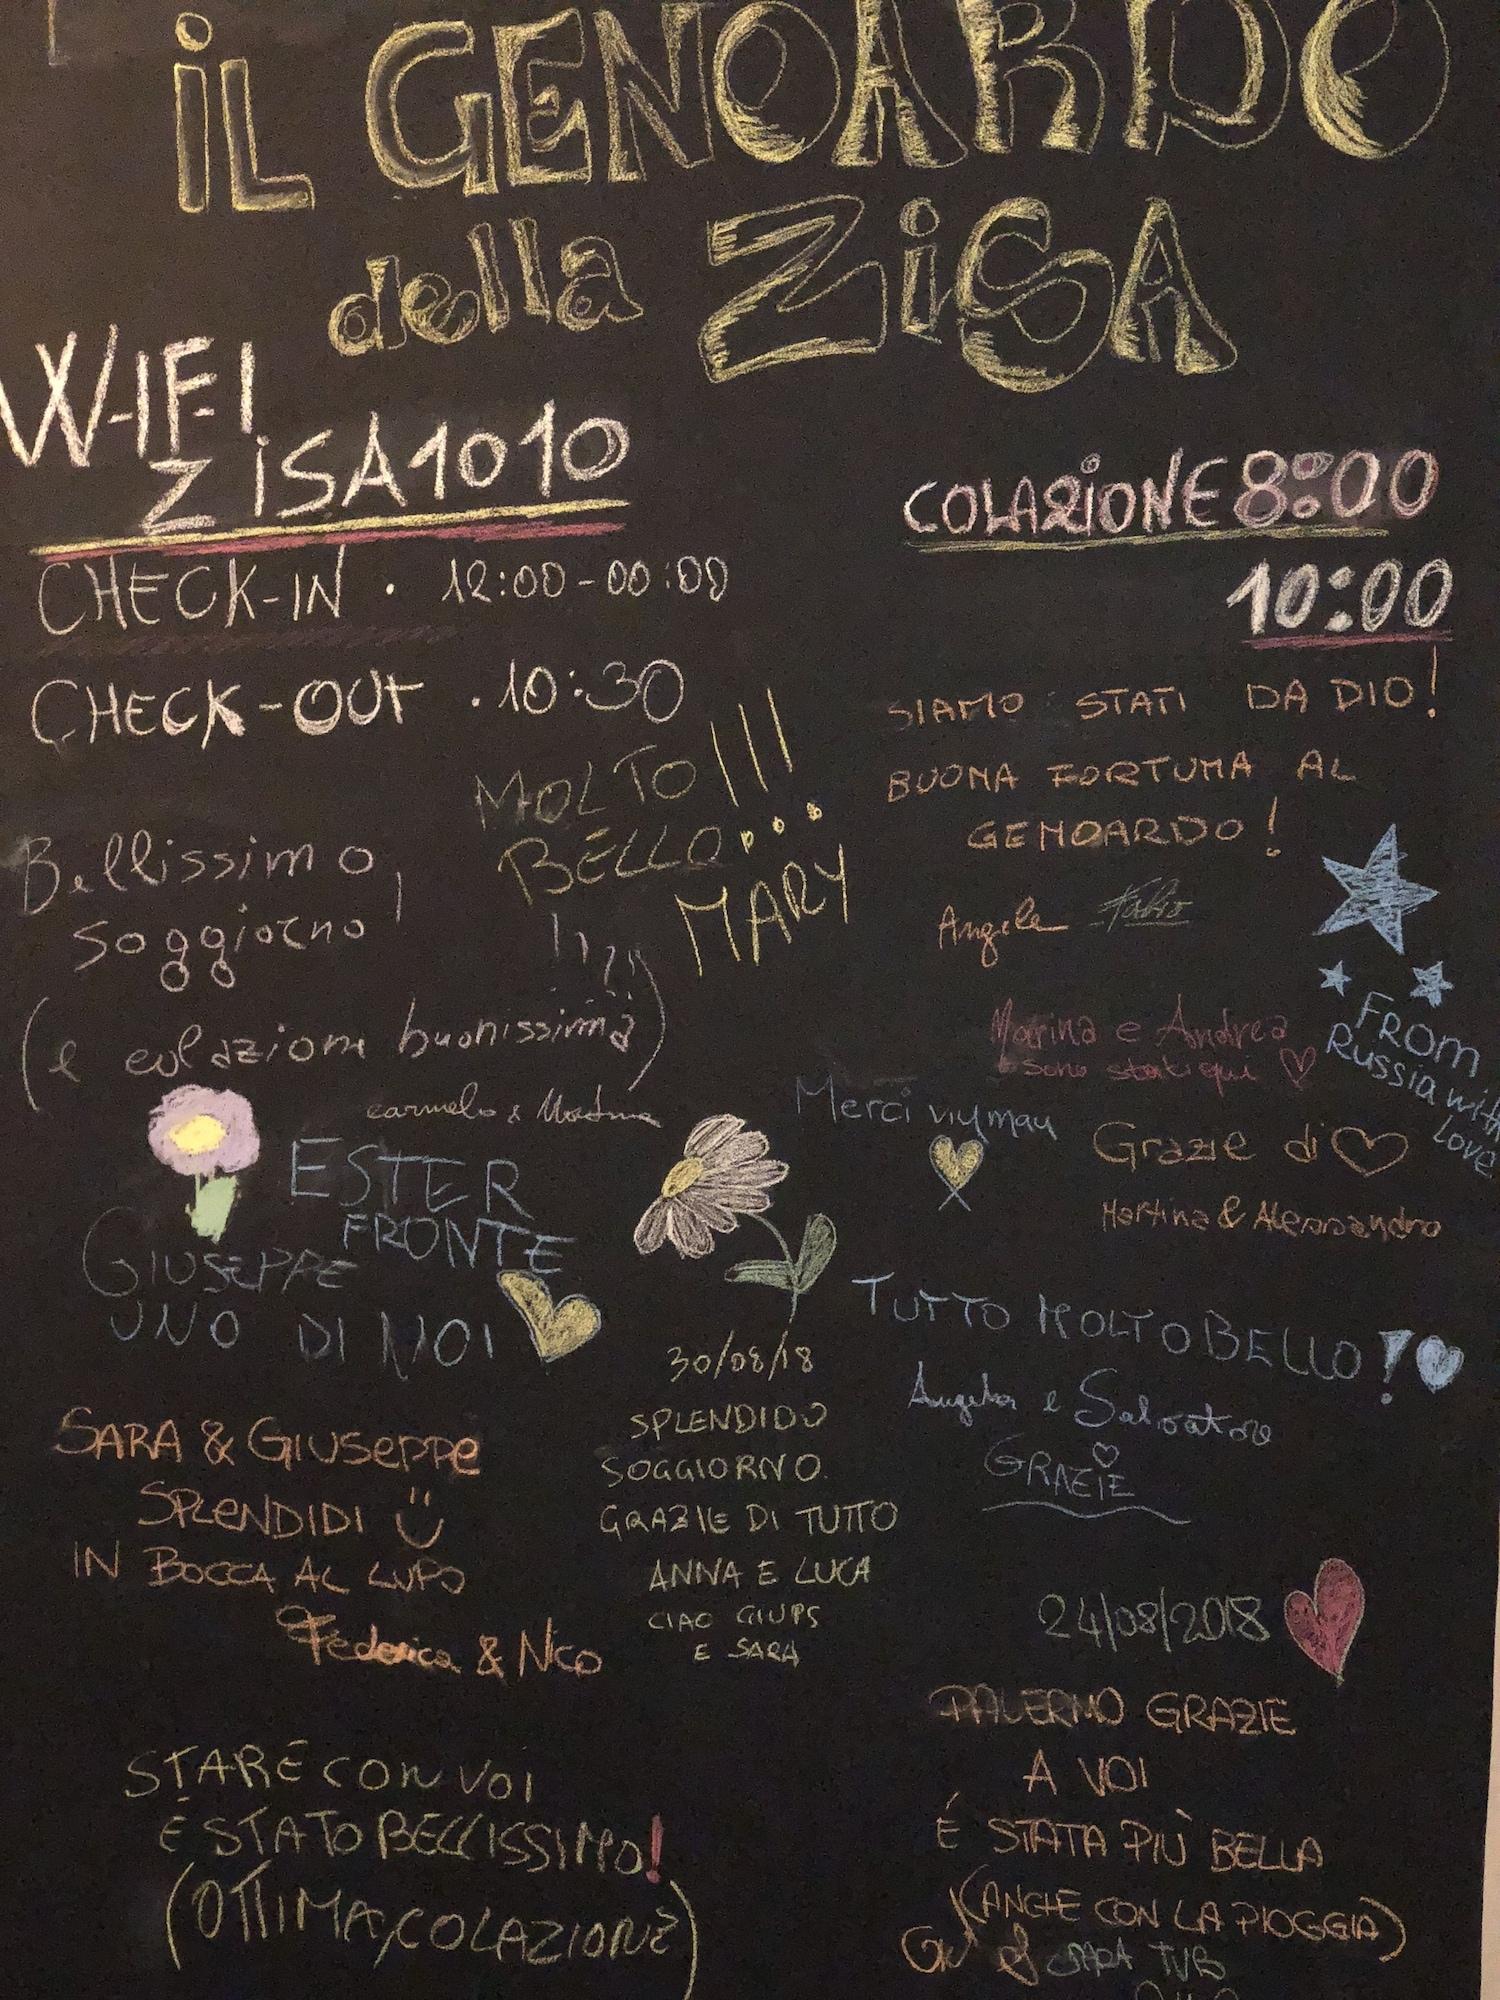 iL GENOARDO
della ZiSA
WIFI
ZiSA1010
COLAZiONE 8:00
10:00
CHECK-IN · 12:00-00:00
CHECK-OUT · 10:30
SIAMO STATI DA DIO!
BUONA FORTUNA AL
GENOARDO!
Angela Fabio
MOLTO!!!
BELLO...
MARY
Bellissimo
soggiorno
(e colazione buonissima)
Carmelo &
FROM
Russia with
Love
Marina e Andrea
sono stati qui
Merci
Grazie di
Martina & Alessandro
ESTER
FRONTE
GIUSEPPE
UNO DI NOI
TUTTO MOLTO BELLO!
Angela e Salvatore
GRAZIE
30/08/18
SPLENDIDO
SOGGIORNO.
GRAZIE DI TUTTO
ANNA E LUCA
CIAO GIUPS
E SARA
SARA & GIUSEPPE
SPLENDIDI
IN BOCCA AL LUPO
Federica & Nico
24/08/2018
PALERMO GRAZIE
A VOI
É STATA PIÙ BELLA
(ANCHE CON LA PIOGGIA)
SARA TVB
STARE CON VOI
È STATO BELLISSIMO!
(OTTIMA COLAZIONE)